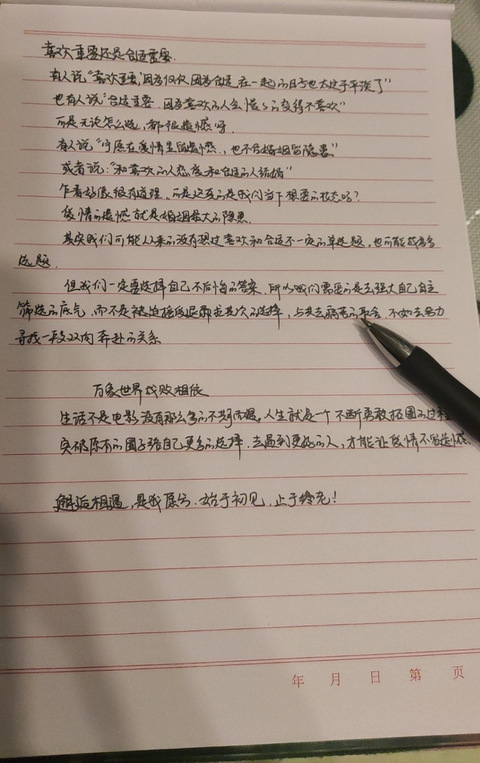 喜欢重要还是合适重要
有人说"喜欢重要,因为仅仅因为合适在一起的日子也太过于平淡了"
也有人说"合适重要.因为喜欢的人会慢慢的变得不喜欢"
可是无论怎么选,都很遗憾呀.
有人说"宁愿在爱情里留遗憾.,也不合婚姻留隐患"
或者说:"和喜欢的人恋爱和合适的人结婚"
乍看好像很有道理.可是这真的是我们当下想要的状态吗?
爱情的遗憾就是婚姻最大的隐患.
其实我们可能从来的没有想过喜欢和合适不一定的单选题,也可能成多
选题.
但我们一定要选择自己不后悔的答案.所以我们需要的是去强大自己自主
筛选的底气,而不是被迫接受退而求其次的选择,与其去 不如去努力
寻找一段双向奔赴的关系
万象世界 相依
生活不是电影没有那么多的不期而遇,人生就是一个不断勇敢拓圈的过程
突破原本的圈子给自己更多的选择.去遇到更好的人,才能让爱情不留遗憾.
邂逅相遇,是我愿兮.始于初见,止于终老!
年 月 日 第 页